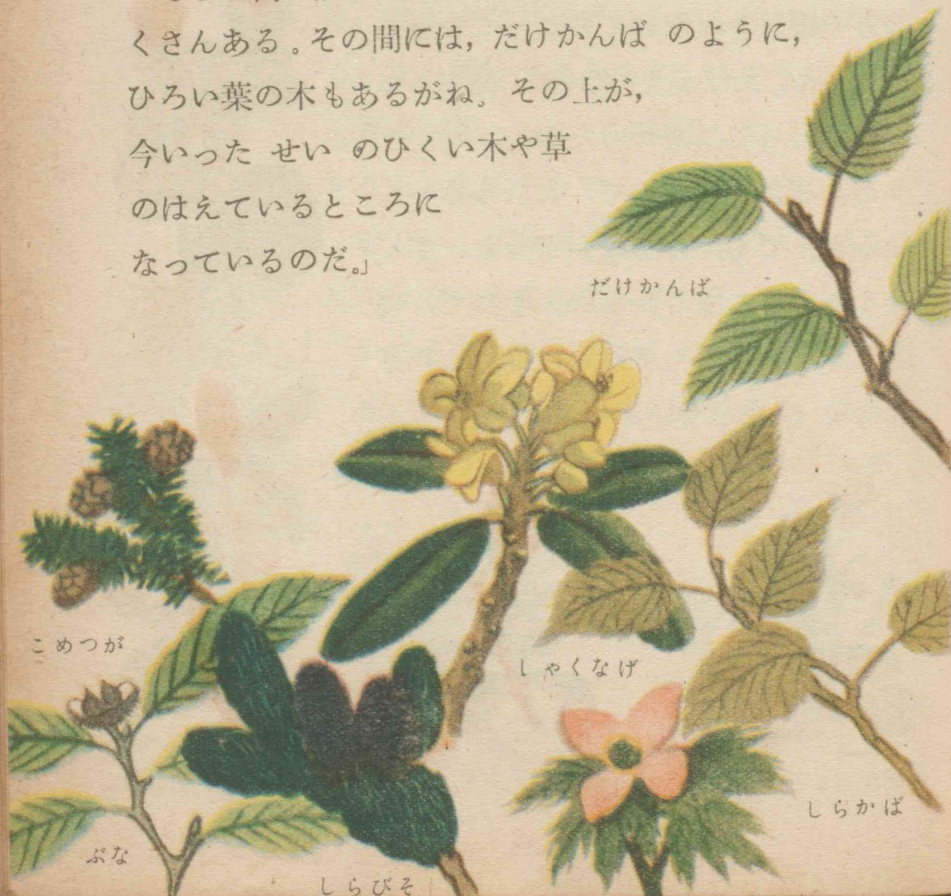 くさんある。その間には，だけかんば のように，
ひろい葉の木もあるがね。その上が，
今いった せい のひくい木や草
のはえているところに
なっているのだ。」
だけかんば
こめつが
しゃくなげ
しらかば
ぶな
しらびそ